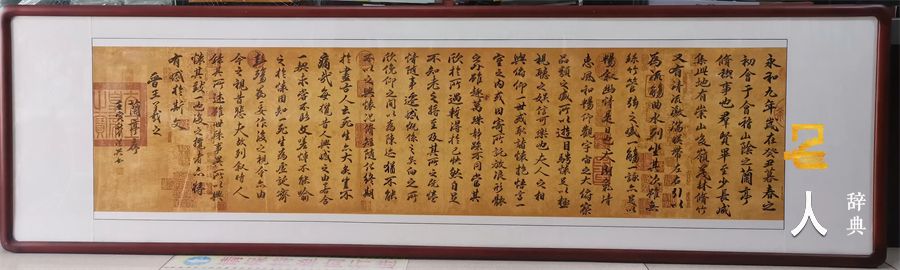 永和九年歲在癸丑暮春之
初會于會稽山陰之蘭亭
脩禊事也群賢畢至少長咸
集此地有崇山峻領茂林脩竹
又有清流激湍暎帶左右引以
為流觴曲水列坐其次雖無
絲竹管弦之盛一觴一詠亦足以
暢敘幽情是日也天朗氣清
惠風和暢仰觀宇宙之大俯察
品類之盛所以遊目騁懷足以極
視聽之娛信可樂也夫人之相
與俯仰一世或取諸懷抱悟言一
室之內或因寄所託放浪形骸
之外雖趣舍萬殊靜躁不同當其
欣於所遇暫得於己快然自足
不知老之將至及其所之既惓
情隨事遷感慨係之矣向之所
欣俛仰之間以為陳迹猶不能
不以之興懷況脩短隨化終期
於盡古人云死生亦大矣豈不
痛哉每攬昔人興感之由若合
一契未嘗不臨文嗟悼不能喻
之於懷固知一死生為虛誕齊
彭殤為妄作後之視今亦由
今之視昔悲夫故列敘時人
錄其所述雖世殊事異所以興
懷其致一也後之攬者亦將
有感於斯文
晉王羲之
蘭亭序
壬寅
人
辞典